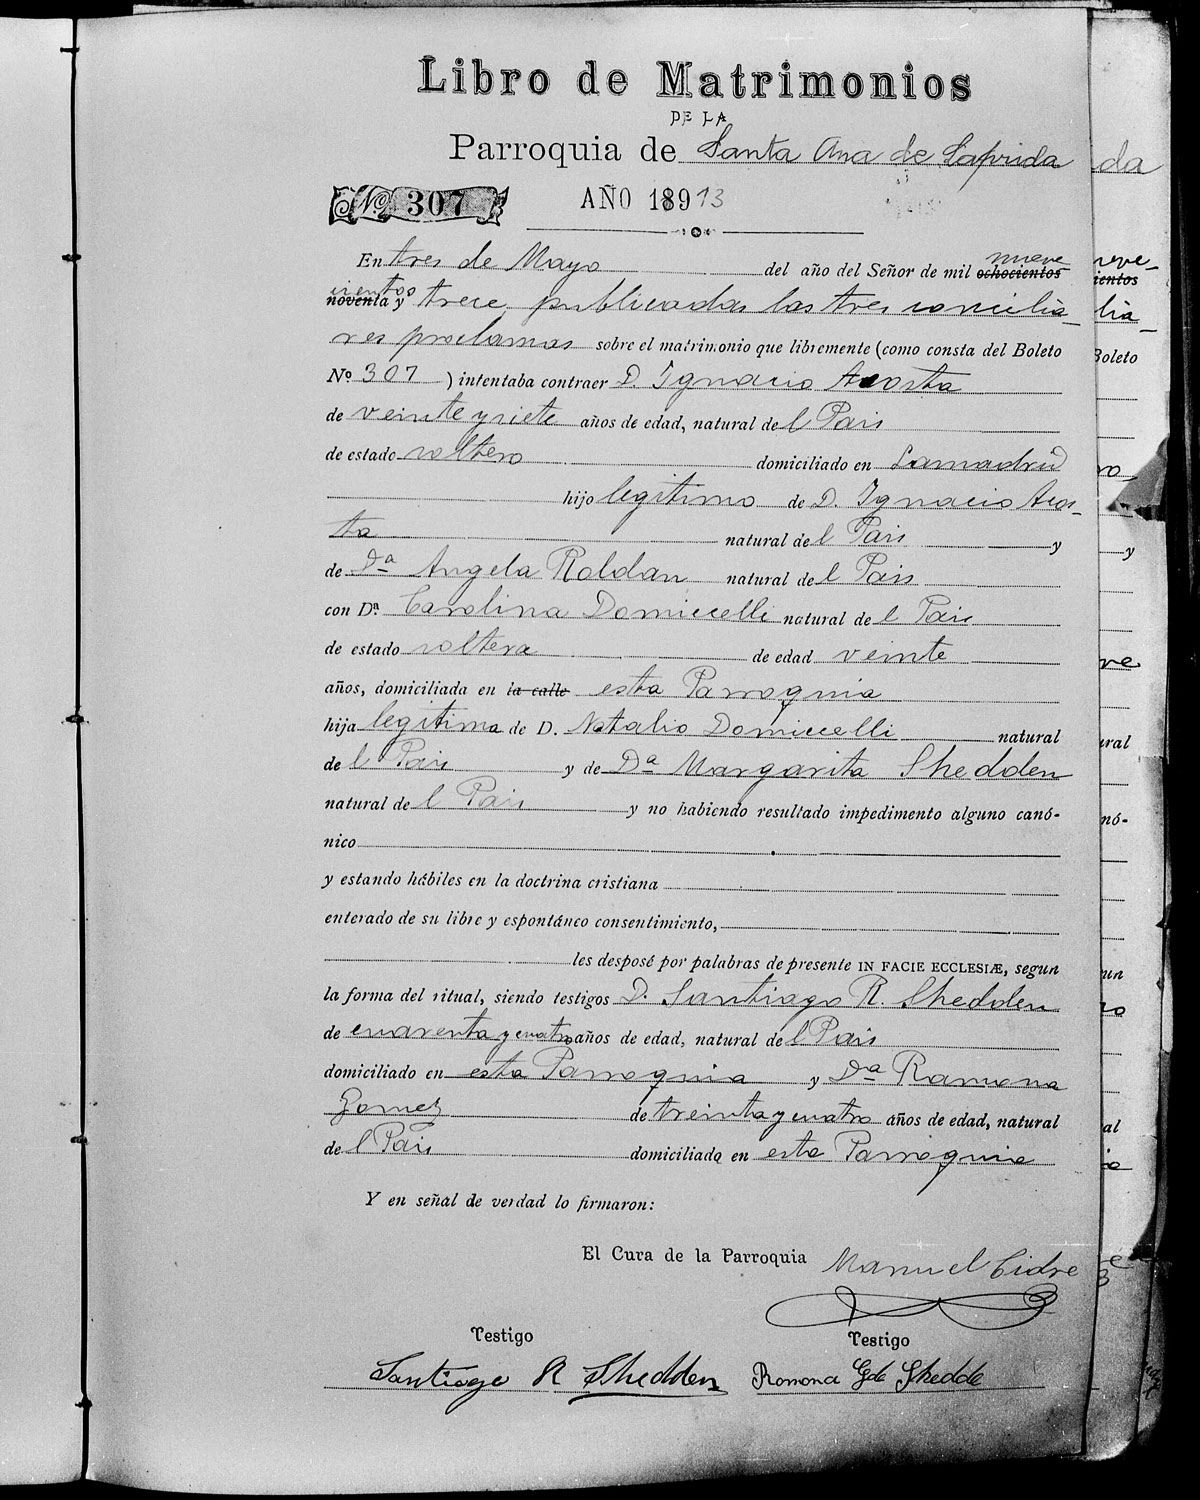 Libro de Matrimonios
DE LA
Parroquia de Santa Ana de Laprida
Nº 307 AÑO 18913
nueve
En tres de Mayo del año del Señor de mil ochocientos
cientos
noventa y trece, publicadas las tres concilia-
res proclamas sobre el matrimonio que libremente (como consta del Boleto
Nº 307 ) intentaba contraer D. Ignacio Acosta
de veinte y siete años de edad, natural de l Pais
de estado soltero domiciliado en Lamadrid
hijo legitimo de D. Ignacio Acos-
ta natural de l Pais y
de Dª Angela Roldan natural de l Pais
con Dª. Carolina Domiccelli natural de l Pais
de estado soltera de edad veinte
años, domiciliada en la calle esta Parroquia
hija legitima de D. Natalio Domiccelli natural
de l Pais y de Dª Margarita Shedden
natural de l Pais y no habiendo resultado impedimento alguno canó-
nico
y estando hábiles en la doctrina cristiana
enterado de su libre y espontáneo consentimiento,
les desposé por palabras de presente IN FACIE ECCLESIÆ, segun
la forma del ritual, siendo testigos D. Santiago R. Shedden
de cuarenta y cuatro años de edad, natural de l Pais
domiciliado en esta Parroquia y Dª Ramona
Gomez de treinta y cuatro años de edad, natural
de l Pais domiciliada en esta Parroquia
Y en señal de verdad lo firmaron:
El Cura de la Parroquia Manuel Cidre
Testigo Testigo
Santiago R Shedden Romona G de Shedde